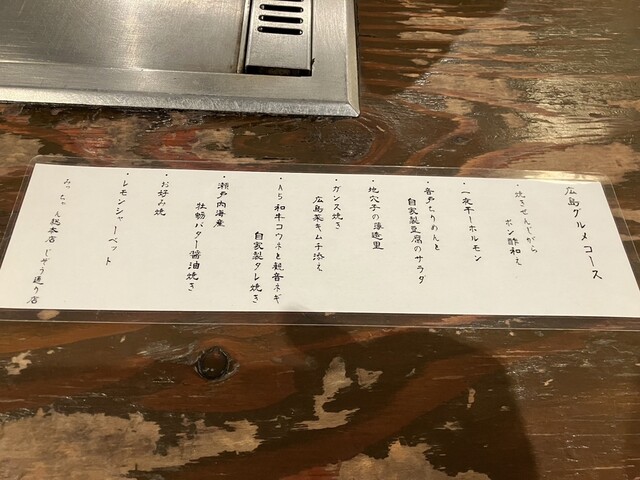 広島グルメコース
・焼きせんじがら
ポン酢和え
・一夜干しホルモン
・音戸ちりめんと
自家製豆腐のサラダ
・地穴子の薄造里
・ガンス焼き
広島菜キムチ添え
・A5和牛コウネと観音ネギ
自家製タレ焼き
・瀬戸内海産
牡蛎バター醤油焼き
・お好み焼
・レモンシャーベット
みっちゃん総本店 じぞう通り店